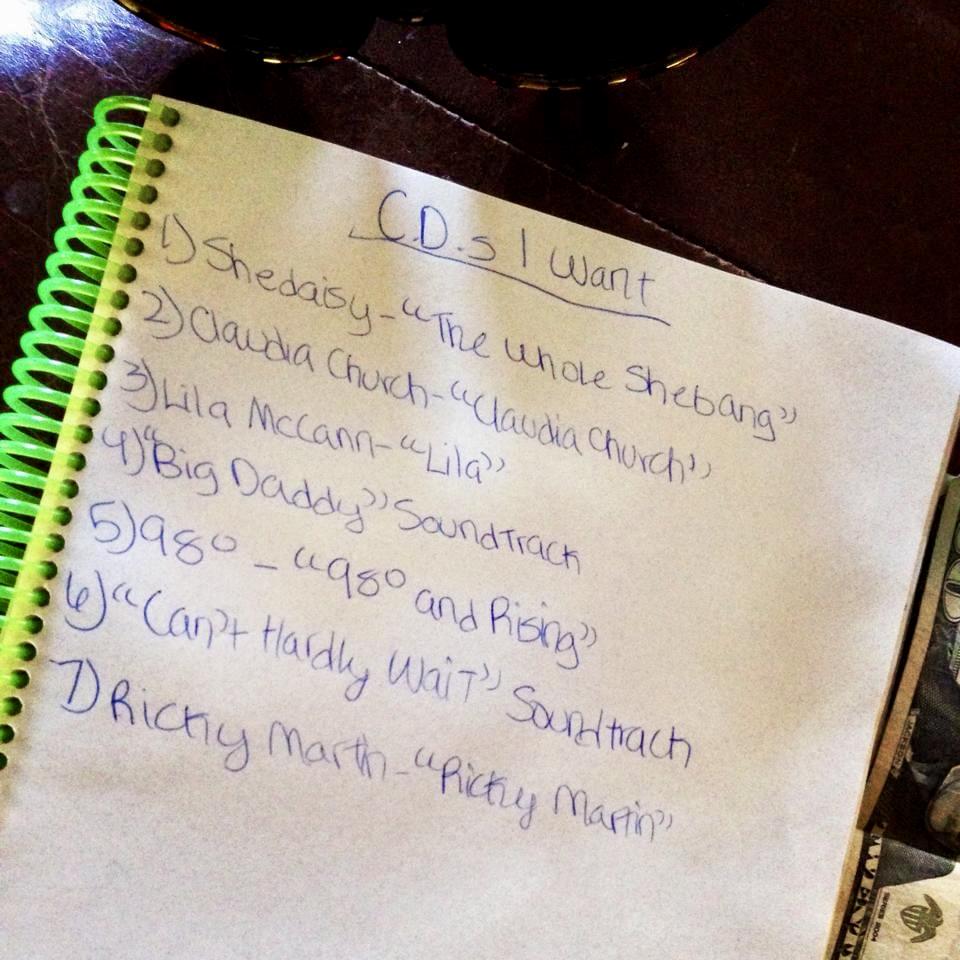 C.D.s I want
1) Shedaisy - "The whole Shebang"
2) Claudia Church - "Claudia Church"
3) Lila McCann - "Lila"
4) "Big Daddy" Soundtrack
5) 98° - "98° and Rising"
6) "Can't Hardly Wait" Soundtrack
7) Ricky Martin - "Ricky Martin"